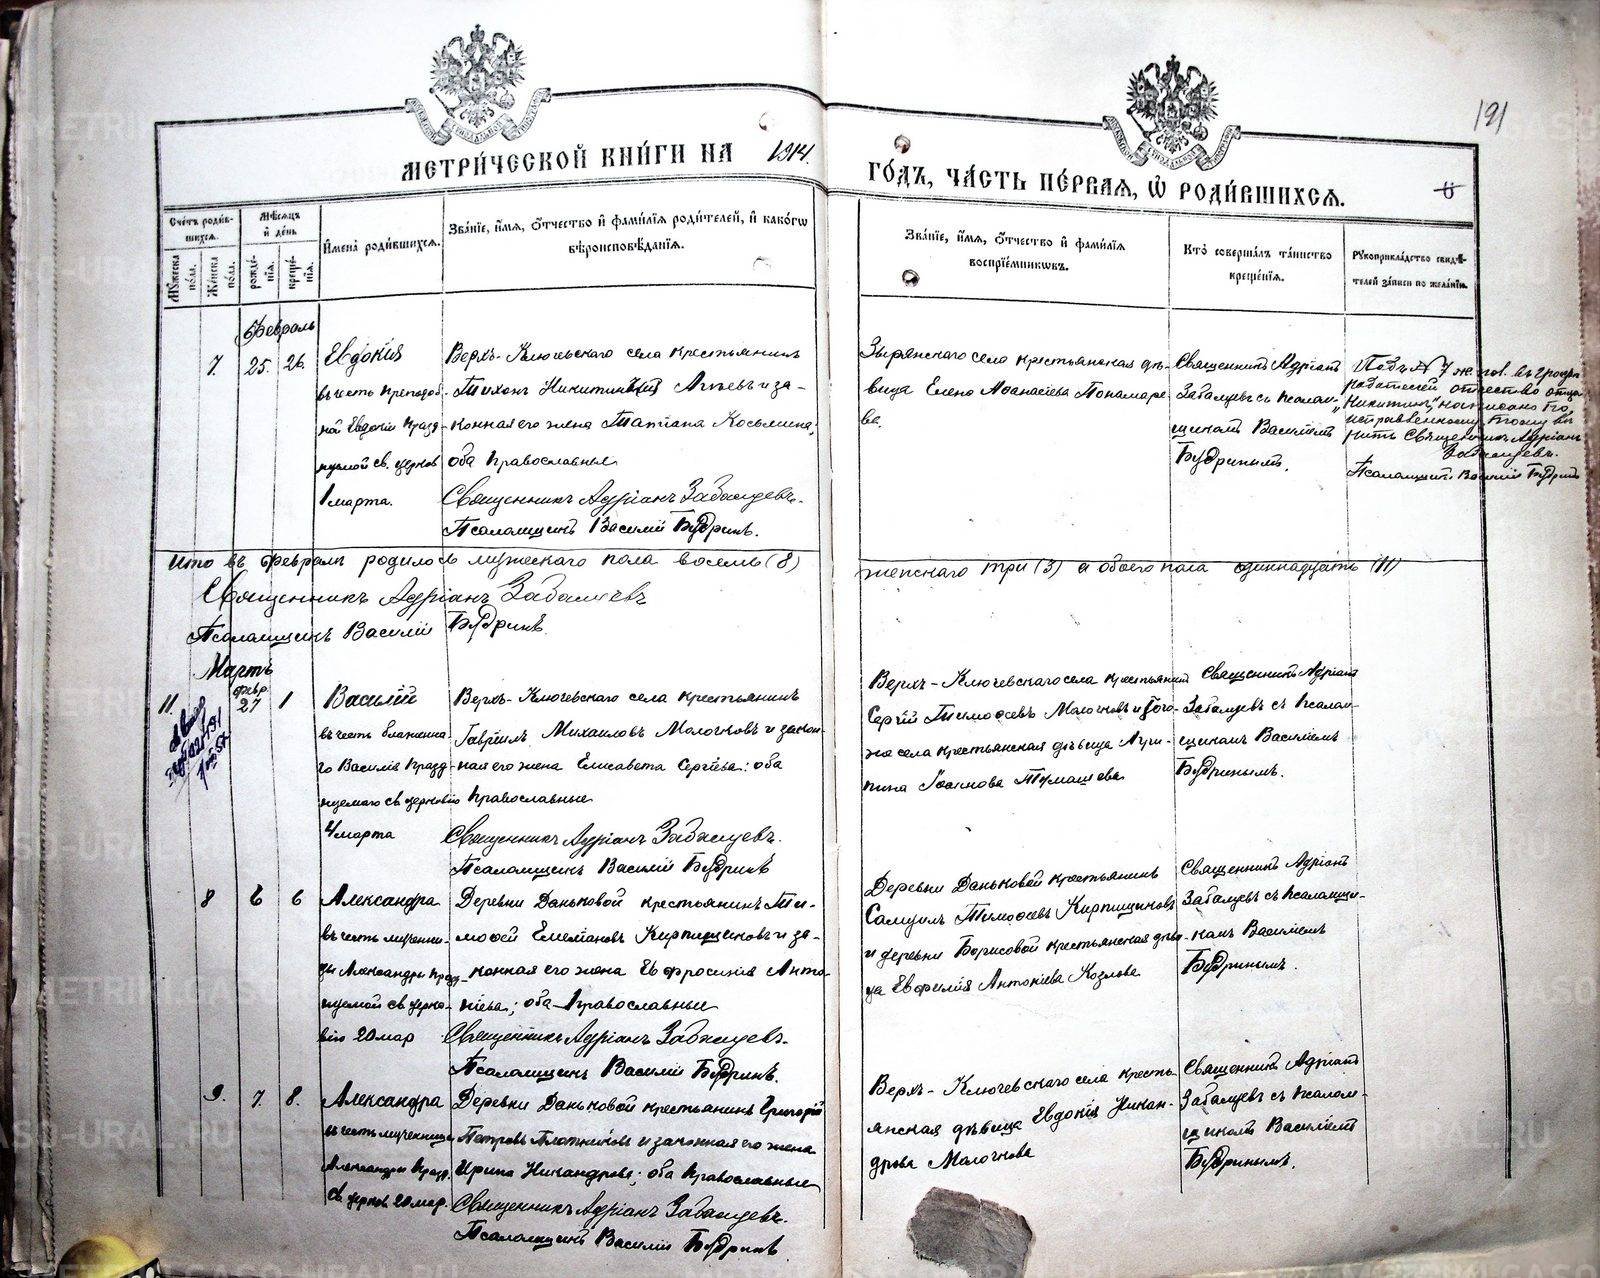 МЕТРИ́ЧЕСКОЙ КНИ́ГИ НА 1914.
ГО́ДЪ, ЧА́СТЬ ПЕ́РВАЯ, Ѿ РОДИ́ВШИХСЯ.
191
Сче́тъ роди́вшихся.
Му́жеска по́ла.
Же́нска по́ла.
Мѣ́сяцъ и де́нь
рожде́нія.
креще́нія.
Имена̀ роди́вшихся.
Зва́ніе, и́мя, о́тчество и фами́лія роди́телей, и како́гѡ
вѣроисповѣ́данія.
Зва́ніе, и́мя, о́тчество и фами́лія
воспріе́мникѡвъ.
Кто̀ соверша́лъ та́инство
креще́нія.
Рукоприкла́дство свидѣ́-
телей за́писи по жела́нію.
Февраль
7. 25. 26. Евдокія
въ честь преподоб-
ной Евдокіи празд-
нуемой св. церков
1 марта.
Верхъ-Ключевскаго села крестьянинъ
Тихонъ Никитинъ и за-
конная его жена Татіана Косьмина;
оба православные
Священникъ Адріанъ Забалуевъ.
Псаломщикъ Василій Будринъ.
Зырянскаго села крестьянская дѣ-
вица Елена Аѳанасіева Пономаре
ва.
Священникъ Адріанъ
Забалуевъ съ псалом-
щикомъ Василіемъ
Будринымъ.
Подъ № 7 жен. въ графѣ
родителей отчество отца
"Никитинъ" написано по
исправленному тому вѣ
рить Священникъ Адріанъ
Забалуевъ.
Псаломщикъ Василій Будринъ
Итого въ февралѣ родилось мужескаго пола восемь (8)
женскаго три (3) а обоего пола одиннадцать (11)
Священникъ Адріанъ Забалуевъ
Псаломщикъ Василій Будринъ.
Мартъ
11. февр. 27 1 Василій
въ честь блаженна
го Василія празд-
нуемаго св церковію
4 марта
Верхъ-Ключевскаго села крестьянинъ
Гавріилъ Михаиловъ Молочковъ и закон-
ная его жена Елисавета Сергіева: оба
православные
Священникъ Адріанъ Забалуевъ.
Псаломщикъ Василій Будринъ
Верхъ-Ключевскаго села крестьянинъ
Сергій Тимоѳеевъ Молочковъ и того-
же села крестьянская дѣвица Агри-
пина Іоаннова Тумашева
Священникъ Адріанъ
Забалуевъ съ псалом-
щикомъ Василіемъ
Будринымъ.
8 6 6 Александра
въ честь мучени-
цы Александры празд-
нуемой св. церко-
вію 20 мар
Деревни Даньковой крестьянинъ Ти-
моѳей Кирпищиковъ и за-
конная его жена Евфросинія Анто-
ніева; оба православные
Священникъ Адріанъ Забалуевъ.
Псаломщикъ Василій Будринъ.
Деревни Даньковой крестьянинъ
Самуилъ Тимоѳеевъ Кирпищиковъ
и деревни Борисовой крестьянская дѣви-
ца Евфимія Антоніева Козлова
Священникъ Адріанъ
Забалуевъ съ псаломщи-
комъ Василіемъ
Будринымъ.
9. 7. 8. Александра
въ честь мученицы
Александры празд.
св. церков 20 мар.
Деревни Даньковой крестьянинъ Григорій
Петровъ Плотниковъ и законная его жена
Ирина Никандрова; оба православные
Священникъ Адріанъ Забалуевъ.
Псаломщикъ Василій Будринъ
Верхъ-Ключевскаго села кресть-
янская дѣвица Евдокія Никан-
дрова Молочкова
Священникъ Адріанъ
Забалуевъ съ псалом-
щикомъ Василіемъ
Будринымъ.